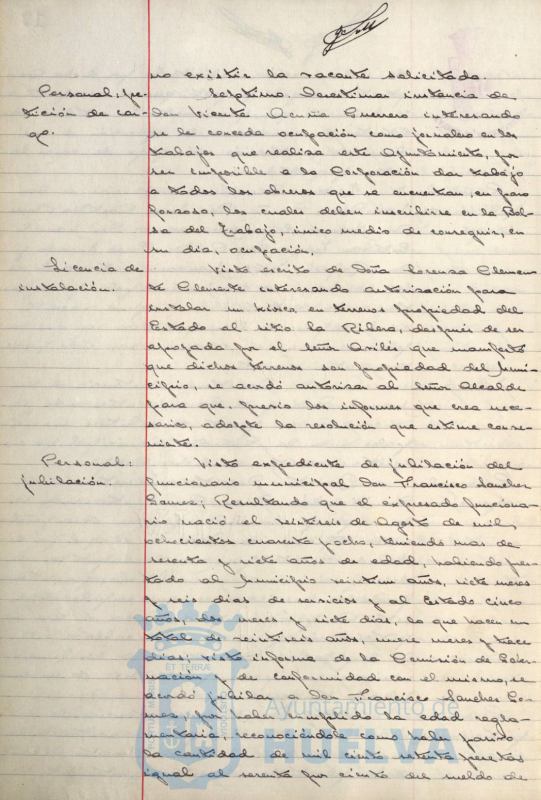 no existir la vacante solicitada.
Personal: pe-
tición de car-
go.
Septimo. Desestimar instancia de
Don Vicente Acuña Guerrero interesando
se le conceda ocupación como jornalero en los
trabajos que realiza este Ayuntamiento, por
ser imposible a la Corporación dar trabajo
a todos los obreros que se encuentran, en paro
forzoso, los cuales deben inscribirse en la Bol-
sa del Trabajo, único medio de conseguir, en
su dia, ocupación.
Licencia de
instalación.
Visto escrito de Doña Lorenza Clemen-
te Clemente interesando autorización para
instalar un kiosco en terrenos propiedad del
Estado al sitio la Ribera, después de ser
apoyada por el señor Avilés que manifestó
que dichos terrenos son propiedad del Muni-
cipio, se acordó autorizar al Señor Alcalde
para que, previo los informes que crea nece-
sario, adopte la resolución que estime conve-
niente.
Personal:
jubilación.
Visto expediente de jubilación del
funcionario municipal Don Francisco Sanchez
Gomez; Resultando que el expresado funciona-
rio nació el veintiseis de Agosto de mil
ochocientos cuarenta y ocho, teniendo mas de
sesenta y siete años de edad, habiendo pres-
tado al Municipio veintiun años, siete meses
y seis dias de servicios y al Estado cinco
años, dos meses y siete dias, lo que hacen un
total de veintiseis años, nueve meses y trece
dias; visto informe de la Comisión de Gober-
nación y de conformidad con el mismo, se
acordó jubilar a Don Francisco Sanchez Go-
mez, por haber cumplido la edad regla-
mentaria, reconociéndole como haber pasivo
la cantidad de mil ciento setenta pesetas
igual al sesenta por ciento del sueldo de
ET TERRÆ
Ayuntamiento de
HUELVA